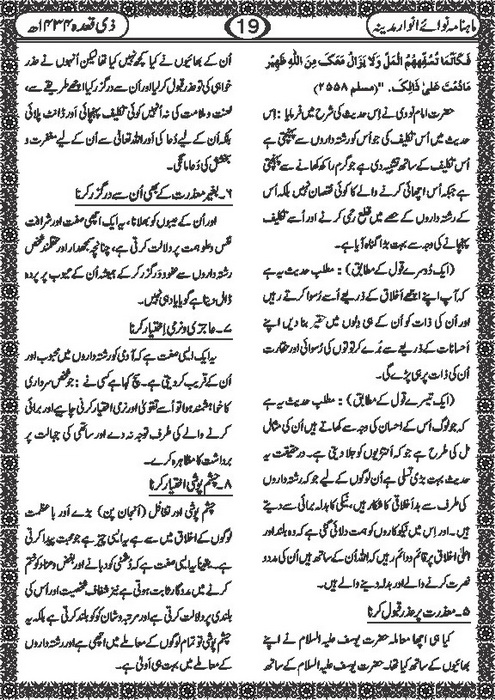 ماہنامہ نوائے انوار مدینہ
19
ذی قعدہ ۱۴۳۴ھ
فَكَأَنَّمَا تُسِفُّهُمُ الْمَلَّ وَلَا يَزَالُ مَعَكَ مِنَ اللهِ ظَهِيْرٌ
مَادُمْتَ عَلىٰ ذَالِكَ۔ "(مسلم ۲۵۵۸)
حضرت امام نووی نے اس حدیث کی شرح میں فرمایا: اِس
حدیث میں اُس تکلیف کی جو اُس کو رشتہ داروں سے پہنچتی ہے
اس تکلیف کے ساتھ تشبیہ دی ہے جو گرم راکھ کھانے سے پہنچتی
ہے جبکہ اُس اچھائی کرنے والے کا کوئی نقصان نہیں بلکہ اُس
کے رشتہ داروں کے حصے میں قطع رحمی کرنے اور اُسے تکلیف
پہنچانے کی وجہ سے بہت بڑا گناہ آیا ہے۔
(ایک دُوسرے قول کے مطابق): مطلب حدیث یہ ہے
کہ آپ اپنے اچھے اَخلاق کے ذریعے اُسے رُسوا کرتے ہیں
اور اُن کی ذات کو اُن کے ہی دِلوں میں حقیر بنا دیں اپنے
اَحسانات کے ذریعے سے بُرے کرتوتوں کی رُسوائی اور حقارت
اُن کی ذات پر ہی پڑے گی۔
(ایک تیسرے قول کے مطابق): مطلب حدیث یہ ہے
کہ جو لوگ اُس کے احسان کی وجہ سے کھاتے ہیں اُن کی مثال
مل کی طرح ہے جو کہ اَنتڑیوں کو جلا دیتی ہے۔ درحقیقت یہ
حدیث بہت بڑی تسلی ہے اُن لوگوں کے لیے جو کہ رشتہ داروں
کی طرف سے بداَخلاقی کا شکار ہیں، نیکی کا بدلہ برائی سے دیتے
ہیں۔ اور اِس میں نیکوکاروں کو ہمت دلائی گئی ہے کہ وہ بلند اور
اعلیٰ اخلاق پر قائم و دوائم رہیں کہ اللہ اُن کے ساتھ ہیں اُن کی مدد و
نصرت کرنے والے اور بدلہ دینے والے ہیں۔
۵۔ معذرت پر عذر قبول کرنا
کیا ہی اچھا معاملہ حضرت یوسف علیہ السلام نے اپنے
بھائیوں کے ساتھ کیا تھا۔ حضرت یوسف علیہ السلام کے ساتھ
اُن کے بھائیوں نے کیا کچھ نہیں کیا تھا لیکن اُنہوں نے عذر
خواہی کی تو عذر قبول کر لیا اور اُن سے درگزر کیا اچھے طریقے سے،
لعنت و ملامت کی نہ اُنہیں کوئی تکلیف پہنچائی اور ڈانٹ پلائی
بلکہ اُن کے لیے دُعا کی اور اللہ تعالیٰ سے اُن کے لیے مغفرت و
بخشش کی دُعا مانگی۔
۶۔ بغیر معذرت کے بھی اُن سے درگزر کرنا
اور اُن کے عیبوں کو بھلانا، یہ ایک اچھی صفت اور شرافت
نفس و علو ہمت پر دلالت کرتی ہے، چنانچہ سمجھدار اور عقلمند شخص
رشتہ داروں سے عفو و درگزر کر کے ہمیشہ اُن کے عیوب پر پردہ
ڈال دیتا ہے گویا یاد ہی نہیں۔
۷۔ عاجزی و نرمی اِختیار کرنا
یہ ایک ایسی صفت ہے کہ آدمی کو رشتہ داروں میں محبوب اور
اُن کے قریب کر دیتی ہے۔ سچ کہا ہے کسی نے: جو شخص سرداری
کا خواہشمند ہو تو اُسے تقویٰ اور نرمی اختیار کرنی چاہیے اور برائی
کرنے والے کی طرف توجہ نہ دے اور ساتھی کی جہالت پر
برداشت کا مظاہرہ کرے۔
۸۔ چشم پوشی اختیار کرنا
چشم پوشی اور تغافل (اَنجان پن) بڑے اور باعظمت
لوگوں کے اخلاق میں سے ہے یہ ایسی چیز ہے جو محبت پیدا کرتی
ہے۔ یقیناً یہ ایسی صفت ہے کہ دُشمنی کو دبانے اور بغض و عناد کو ختم
کرنے میں مددگار ثابت ہوتی ہے نیز شفاف شخصیت اور اُس کی
بلندی پر دلالت کرتی ہے اور مرتبہ و شان کو کو بلند کرتی ہے بلکہ یہ
چشم پوشی تو تمام لوگوں کے معاملے میں اچھی ہے اور رشتہ داروں
کے معاملے میں بہت ہی اَولیٰ ہے۔